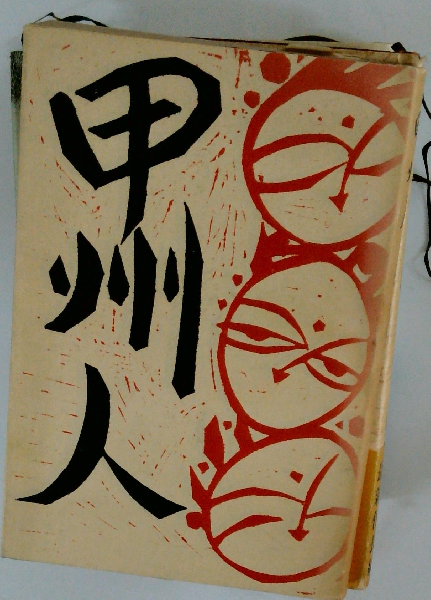 甲州人